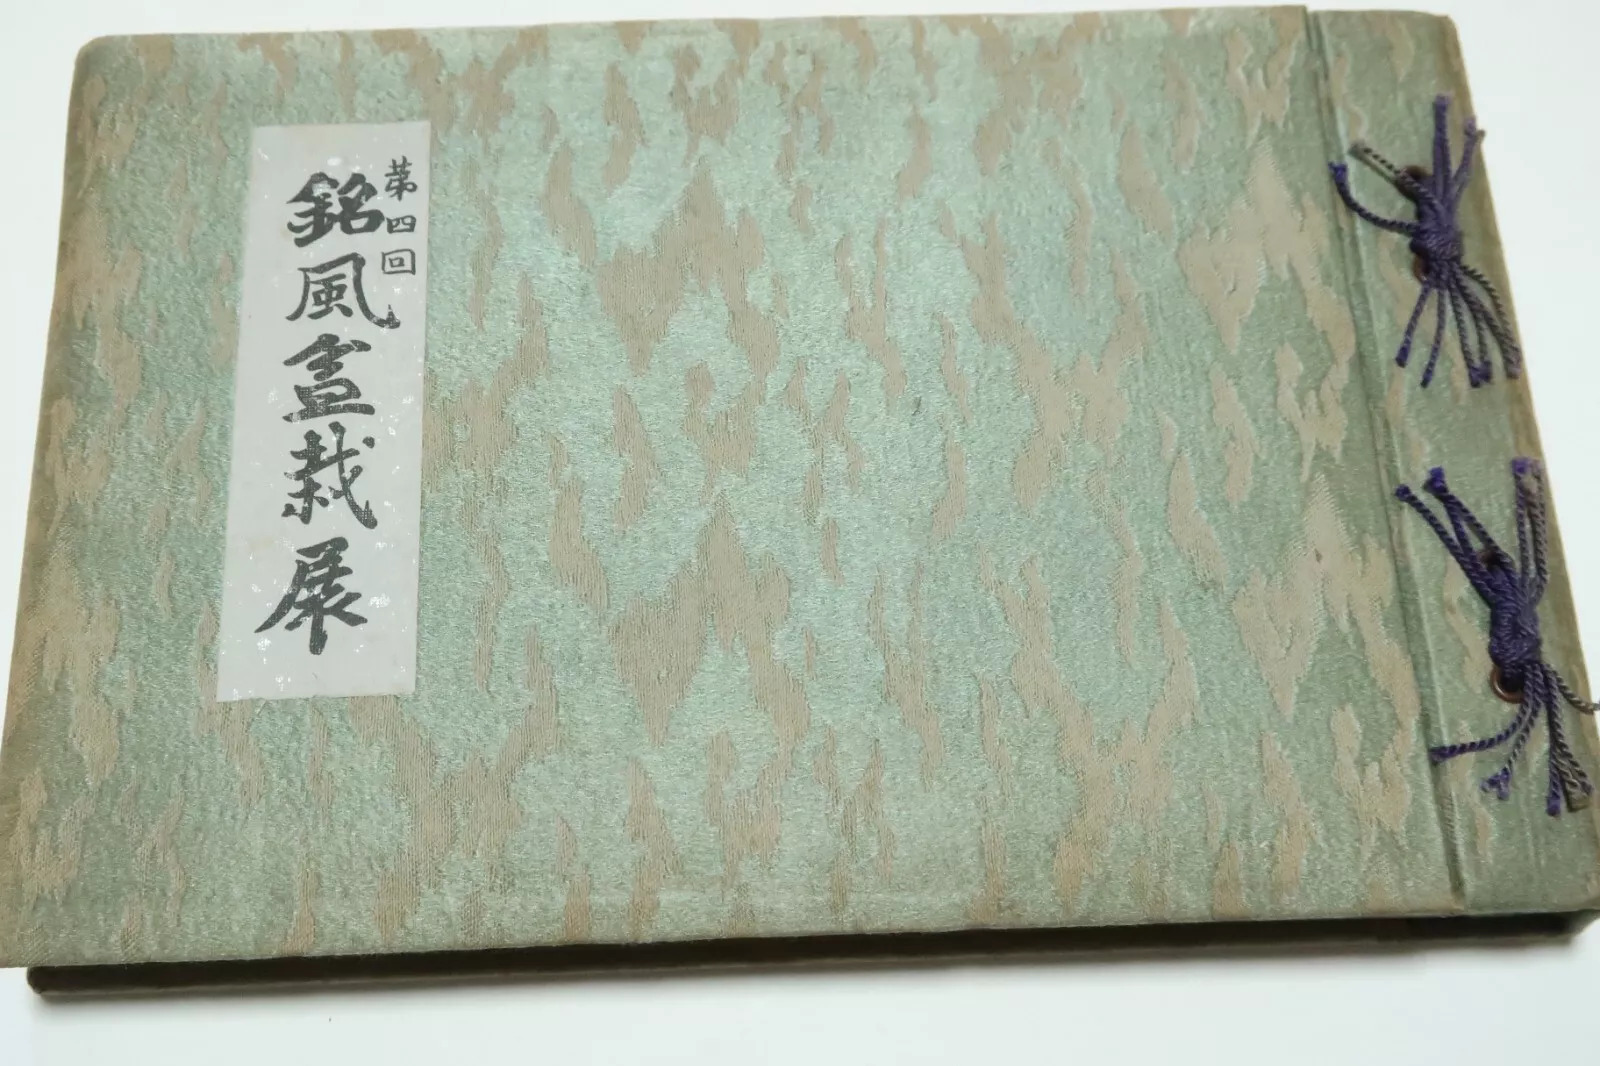 第四回
銘風盆栽展